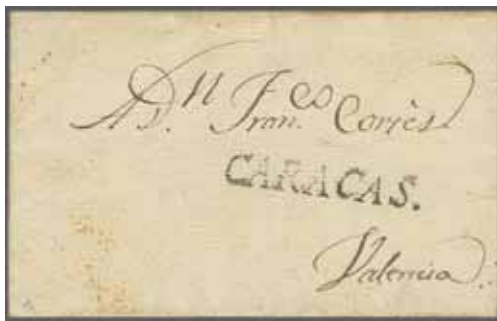 A Dn Franco Cories
CARACAS.
Valencia